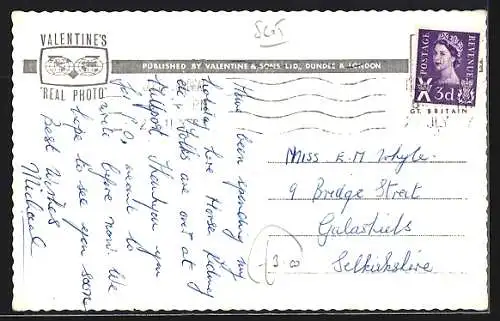 SCO5
VALENTINE'S
"REAL PHOTO"
PUBLISHED BY VALENTINE & SONS, LTD., DUNDEE & LONDON
POSTAGE
REVENUE
3d
GT. BRITAIN
Have been spending my
here Horse Riding
etc. folks are over at
Millport. Thankyou you
for meant to
write before now. We
hope to see you soon
Best Wishes
Michael
Miss E. M. Whyte.
9 Bridge Street
Galashiels
Selkirkshire